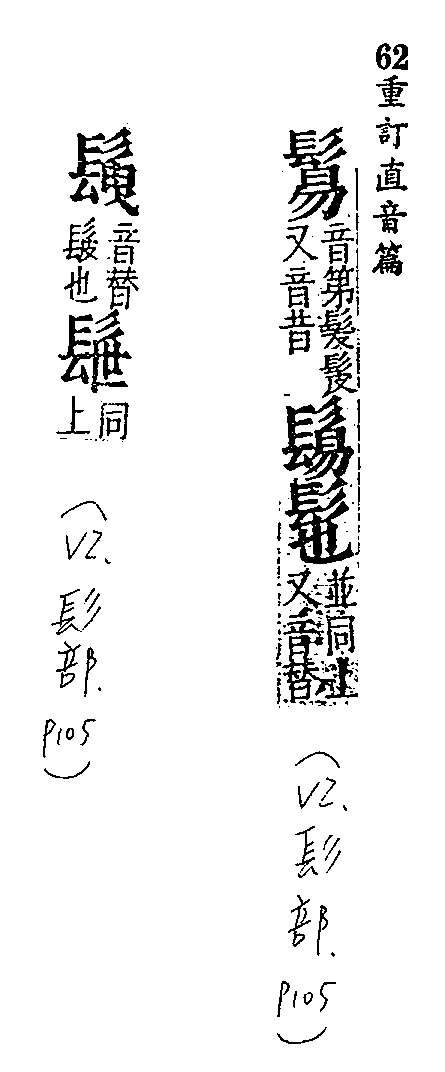 62重訂直音篇
鬄音第髮髲
又音昔
髢並同上
又音替
(V2.髟部.P105)
音替
髲也
同上
(V2.髟部.P105)